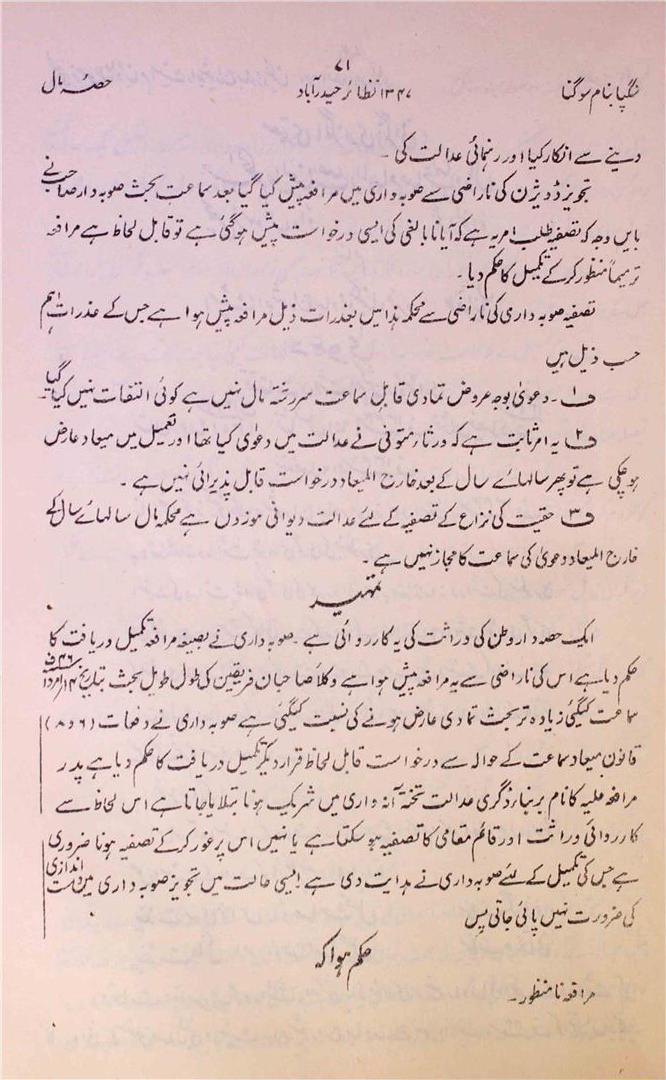 ۷۱
نگپا بنام سوگنا ۱۳۴۷ نظائر حیدرآباد حصہ مال
دینے سے انکار کیا اور رہنمائی عدالت کی ۔
تجویز ڈویژن کی ناراضی سے صوبہ داری میں مرافعہ پیش کیا گیا بعد سماعت بحث صوبہ دار صاحب نے
بایں وجہ کہ تصفیہ طلب امر یہ ہے کہ آیا نابالغی کی ایسی درخواست پیش ہوگئی ہے تو قابل لحاظ ہے مرافعہ
ترمیماً منظور کرکے تکمیل کا حکم دیا ۔
تصفیہ صوبہ داری کی ناراضی سے محکمہ ہذا میں بعذرات ذیل مرافعہ پیش ہوا ہے جس کے عذرات اہم
حسب ذیل ہیں
ف۱ ۔ دعویٰ بوجہ عروض تمادی قابل سماعت سررشتہ مال نہیں ہے کوئی التفات نہیں کیا گیا ۔
ف۲ یہ امر ثابت ہے کہ ورثاء متوفی نے عدالت میں دعویٰ کیا تھا اور تعمیل میں میعاد عارض
ہوچکی ہے تو پھر سالہائے سال کے بعد خارج المیعاد درخواست قابل پذیرائی نہیں ہے ۔
ف۳ حقیت کی نزاع کے تصفیہ کے لئے عدالت دیوانی موزوں ہے محکمہ مال سالہائے سال کے
خارج المیعاد دعویٰ کی سماعت کا مجاز نہیں ہے ۔
تمہید
ایک حصہ دار وطن کی وراثت کی یہ کارروائی ہے ۔ صوبہ داری نے بصیغہ مرافعہ تکمیل دریافت کا
حکم دیا ہے اس کی ناراضی سے یہ مرافعہ پیش ہوا ہے وکلاء صاحبان فریقین کی طول طویل بحث بتاریخ ۱۴ امرداد ۴۶ف
سماعت کیگئی زیادہ تر بحث تمادی عارض ہونے کی نسبت کیگئی ہے صوبہ داری نے دفعات (۶ و ۸)
قانون میعاد سماعت کے حوالہ سے درخواست قابل لحاظ قرار دیکر تکمیل دریافت کا حکم دیا ہے پدر
مرافعہ علیہ کا نام بر بناء ڈگری عدالت تختہ آنہ واری میں شریک ہونا بتلایا جاتا ہے اس لحاظ سے
کارروائی وراثت اور قائم مقامی کا تصفیہ ہو سکتا ہے یا نہیں اس پر غور کرکے تصفیہ ہونا ضروری
ہے جس کی تکمیل کے لئے صوبہ داری نے ہدایت دی ہے ایسی حالت میں تجویز صوبہ داری میں دست اندازی
کی ضرورت نہیں پائی جاتی پس
حکم ہوا کہ
مرافعہ نامنظور ۔